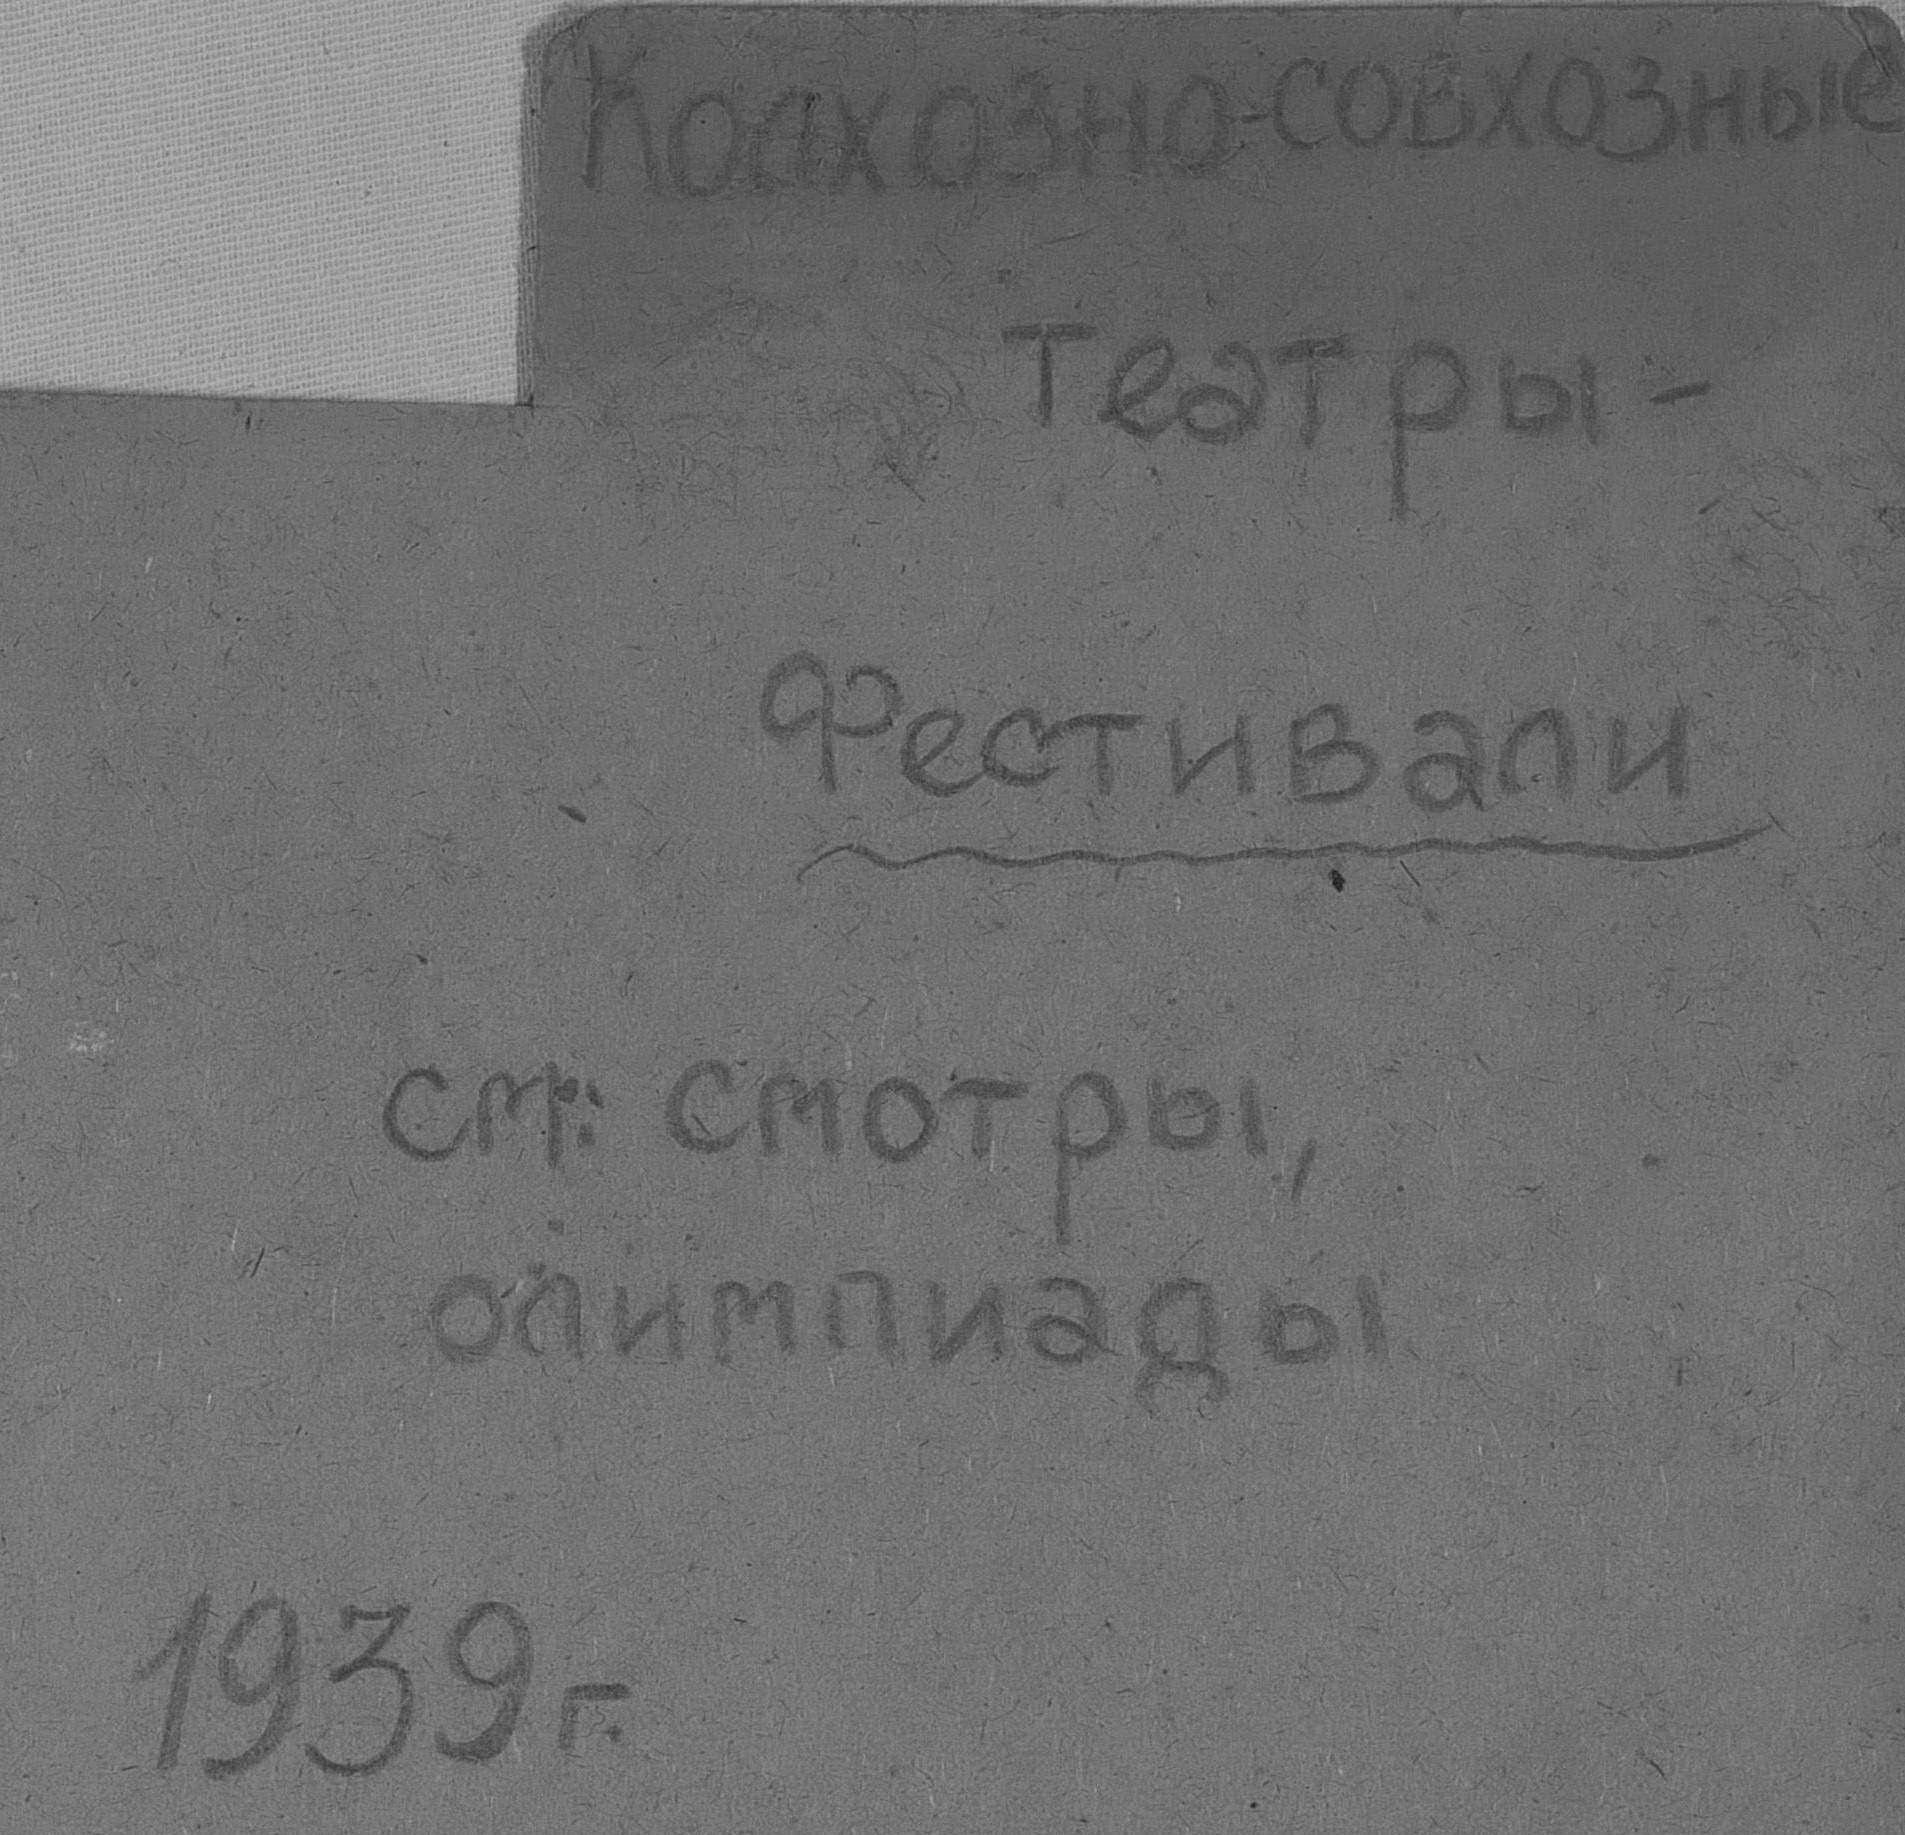 Колхозно-совхозные
театры -
Фестивали
см: смотры,
олимпиады
1939 г.